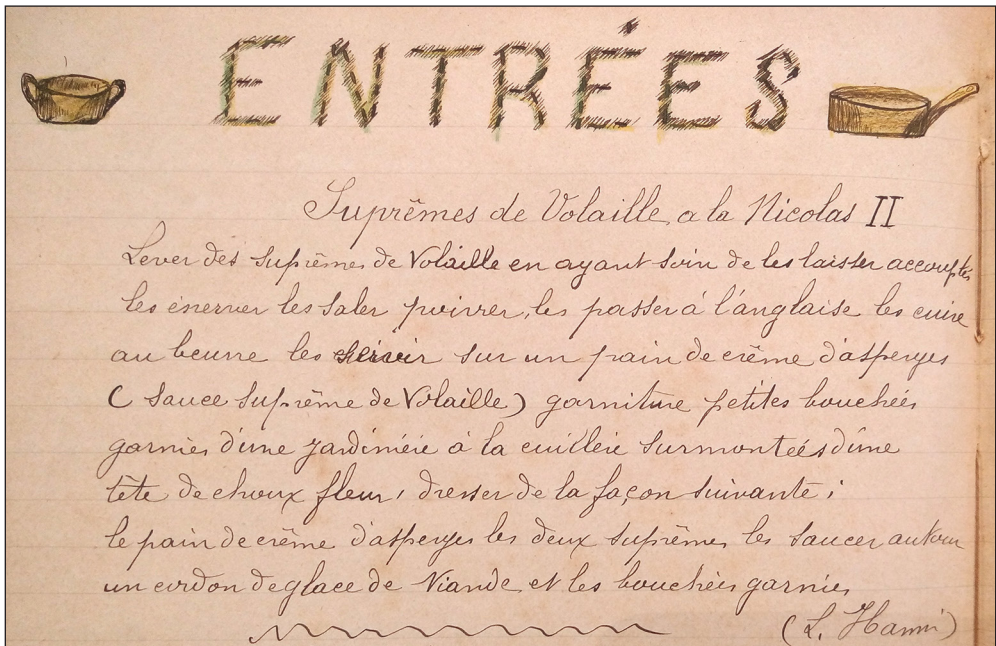 ENTRÉES
Suprêmes de Volaille a la Nicolas II
Lever des suprêmes de Volaille en ayant soin de les laisser accouplés
les énerver les saler poivrer, les passer à l'anglaise les cuire
au beurre les servir sur un pain de crème d'asperges
( sauce suprême de Volaille ) garniture petites bouchées
garnies d'une jardinière à la cuillère surmontées d'une
tête de choux fleur, dresser de la façon suivante ;
le pain de crème d'asperges les deux suprêmes les saucer autour
un cordon de glace de Viande et les bouchées garnies
(L. Hanni)